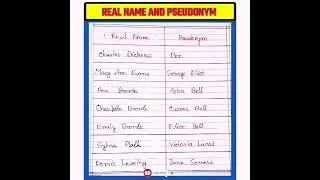 REAL NAME AND PSEUDONYM
Real Name Pseudonym
Charles Dickens Boz.
Mary Ann Evans George Eliot
Ann Bronte Bell
Charlotte Bronte Currer Bell
Emily Bronte Ellis Bell
Sylvia Plath Victoria Lucas
Dorris Lessing Jane Somers